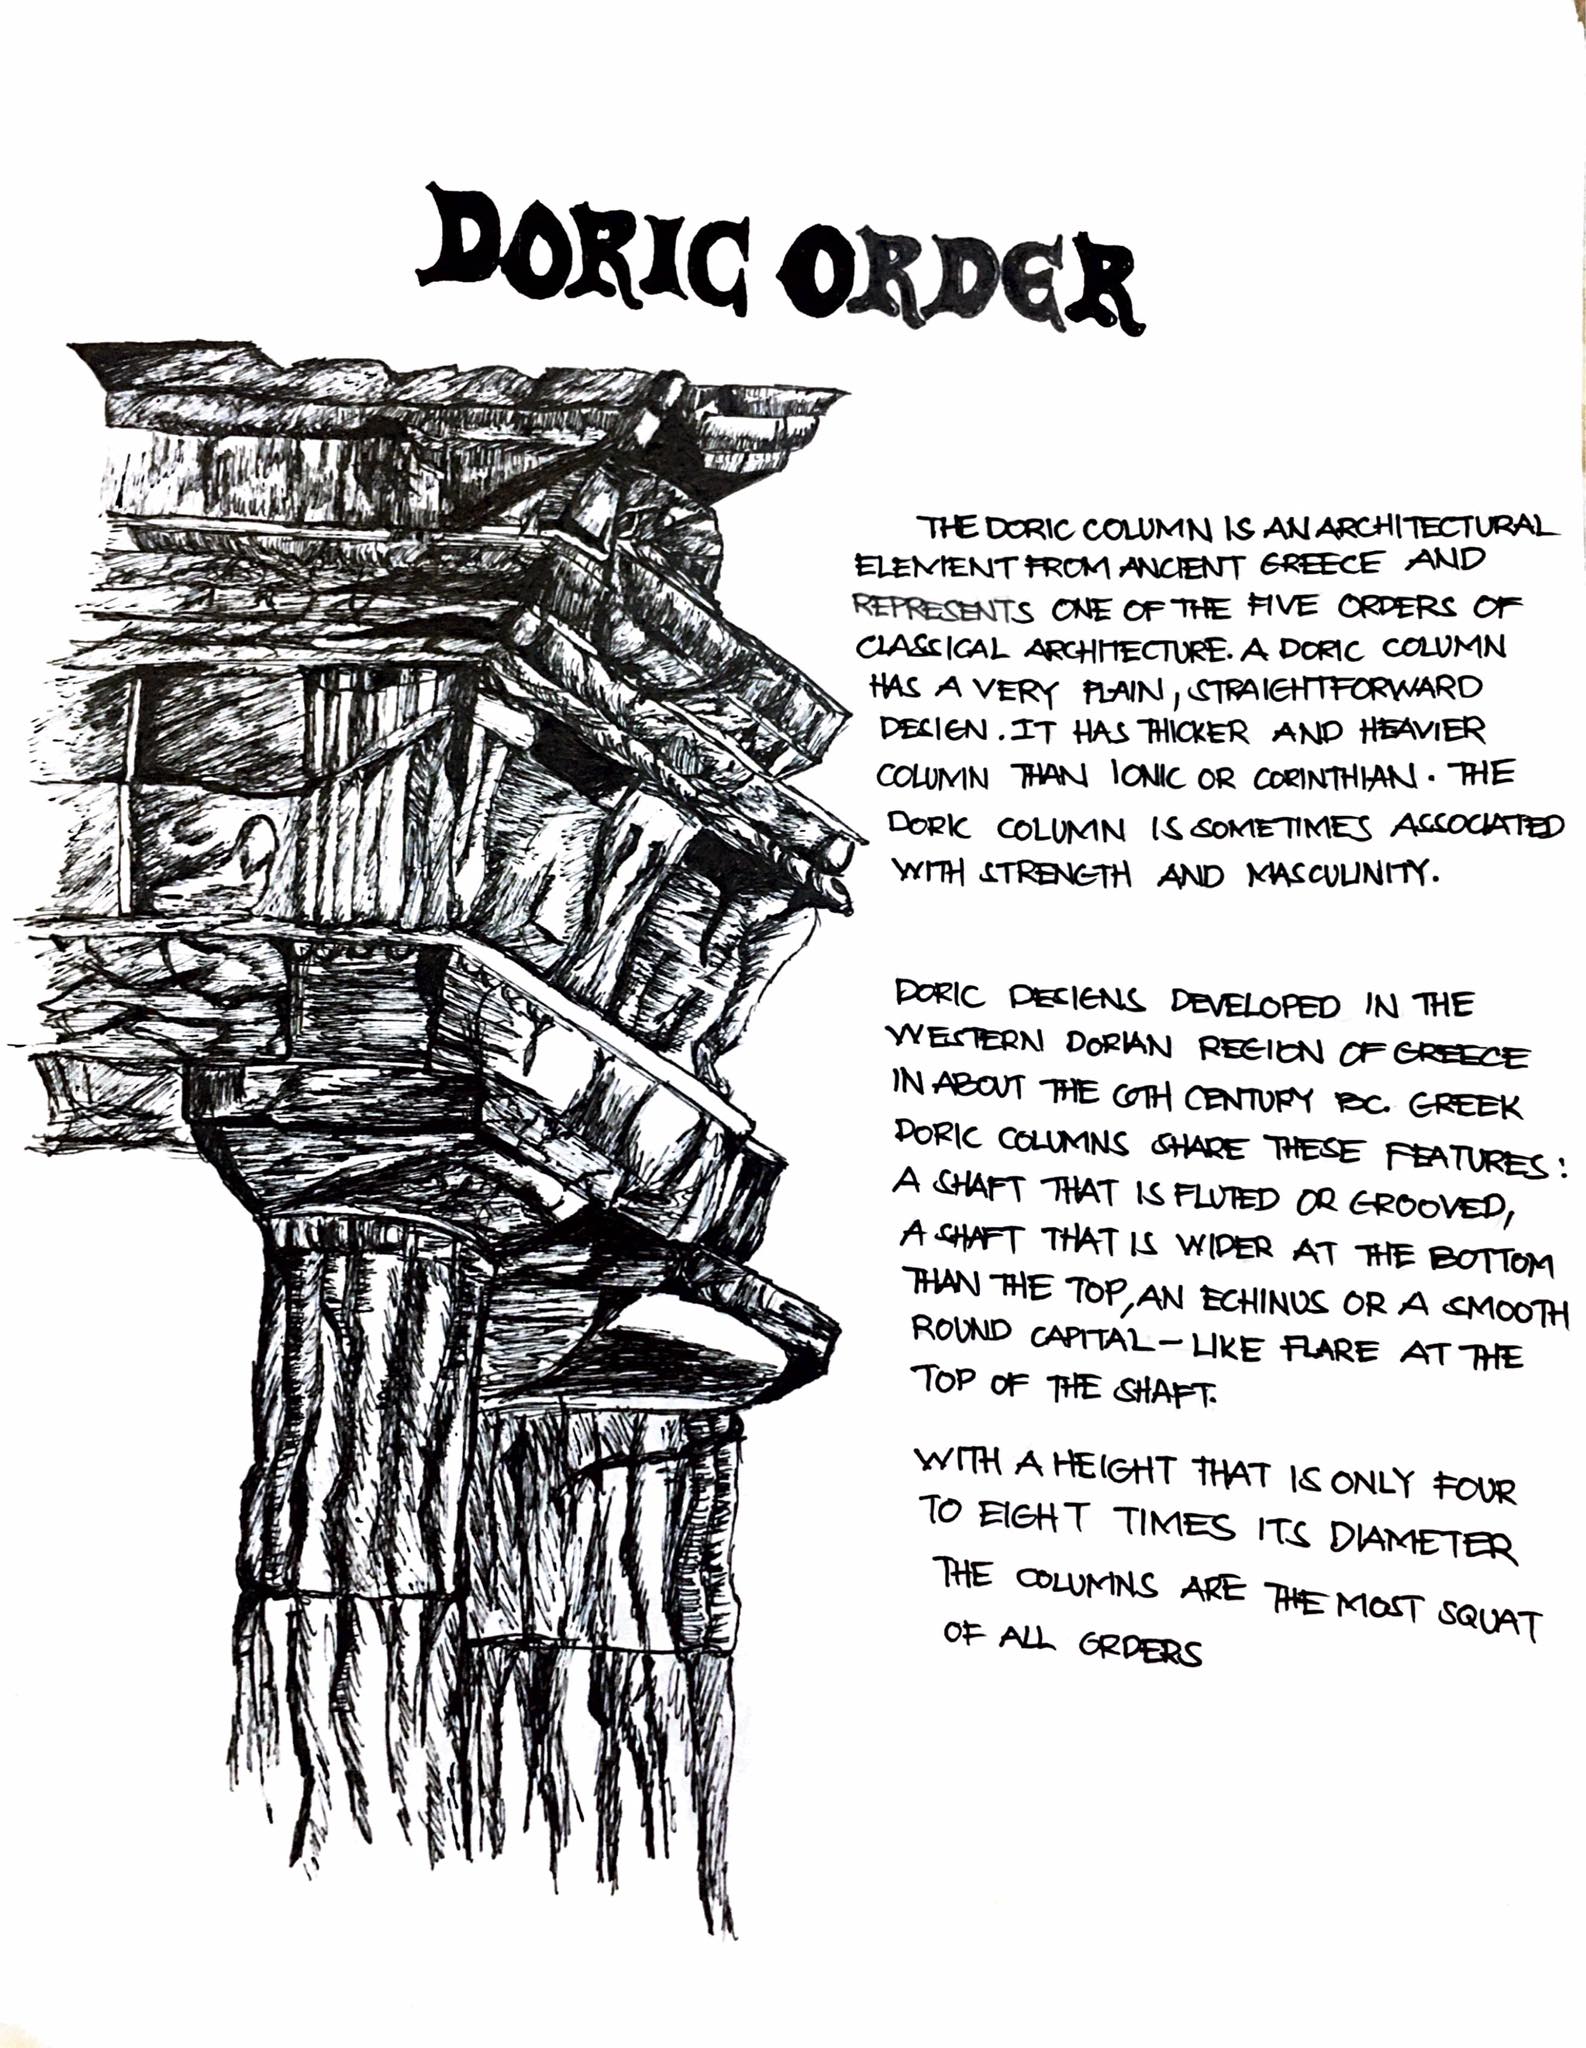 DORIC ORDER
THE DORIC COLUMN IS AN ARCHITECTURAL
ELEMENT FROM ANCIENT GREECE AND
REPRESENTS ONE OF THE FIVE ORDERS OF
CLASSICAL ARCHITECTURE. A DORIC COLUMN
HAS A VERY PLAIN, STRAIGHTFORWARD
DESIGN. IT HAS THICKER AND HEAVIER
COLUMN THAN IONIC OR CORINTHIAN. THE
DORIC COLUMN IS SOMETIMES ASSOCIATED
WITH STRENGTH AND MASCULINITY.
DORIC DESIGNS DEVELOPED IN THE
WESTERN DORIAN REGION OF GREECE
IN ABOUT THE 6TH CENTURY BC. GREEK
DORIC COLUMNS SHARE THESE FEATURES:
A SHAFT THAT IS FLUTED OR GROOVED,
A SHAFT THAT IS WIDER AT THE BOTTOM
THAN THE TOP, AN ECHINUS OR A SMOOTH
ROUND CAPITAL-LIKE FLARE AT THE
TOP OF THE SHAFT.
WITH A HEIGHT THAT IS ONLY FOUR
TO EIGHT TIMES ITS DIAMETER
THE COLUMNS ARE THE MOST SQUAT
OF ALL ORDERS